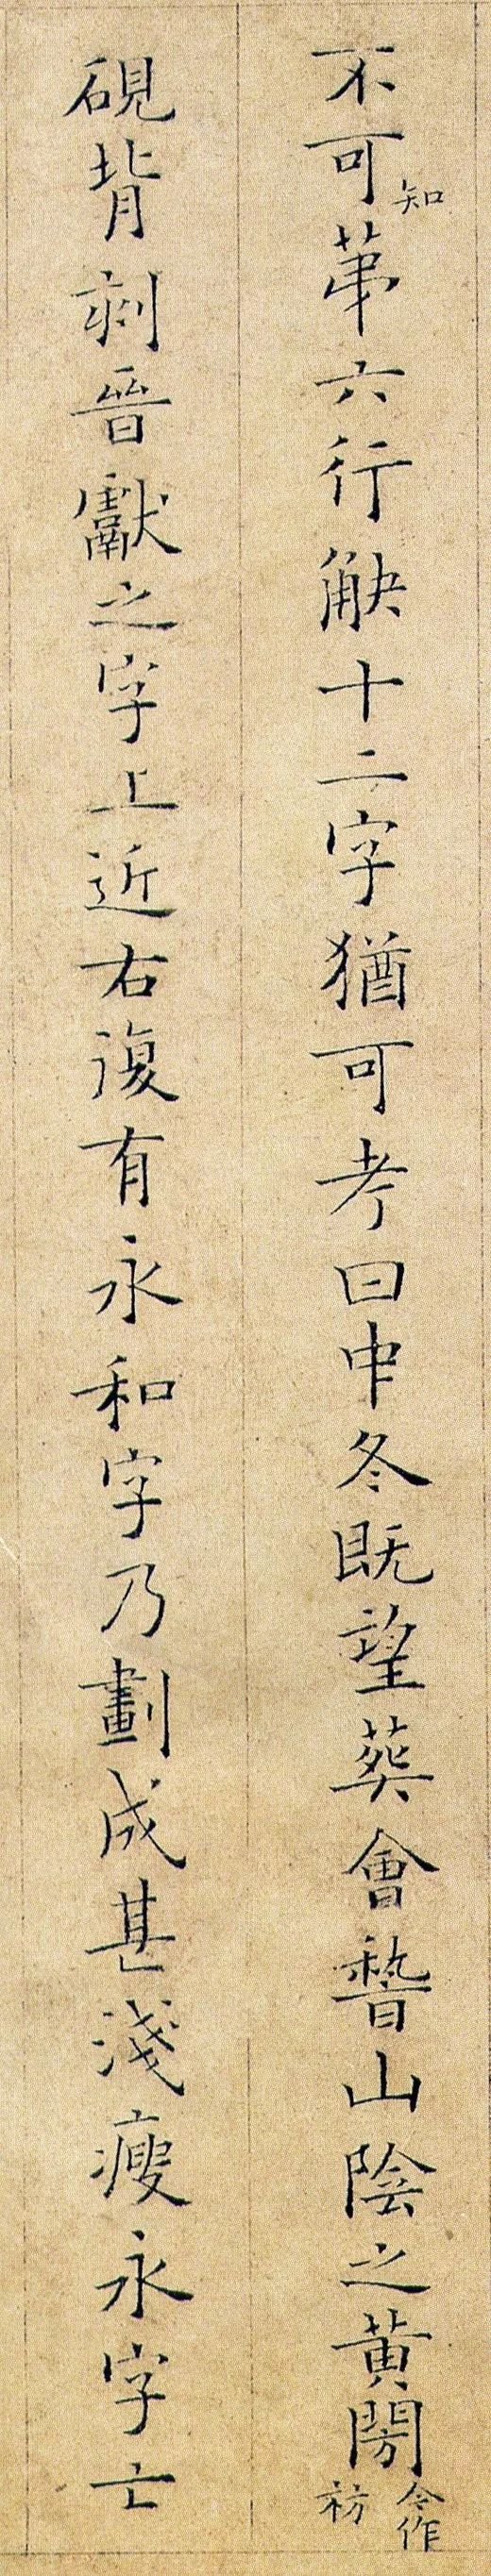 不可知苐六行缺十二字猶可考曰中冬既望葬會稽山陰之黃閍今作祊
硯背刻晉獻之字上近右復有永和字乃劃成甚淺瘦永字亡